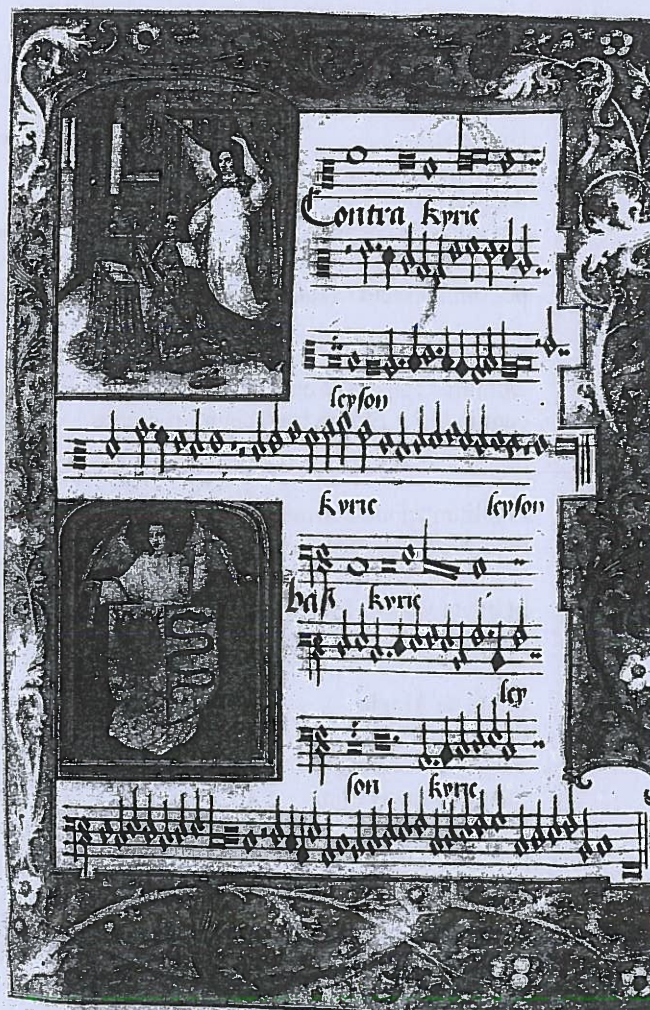 Contra kyrie
leyson
kyrie leyson
bass kyrie
ley
son kyrie